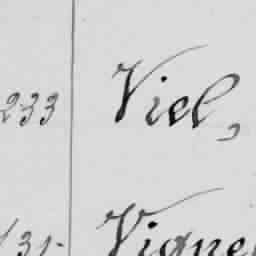 233 Viel,
131- Vigne